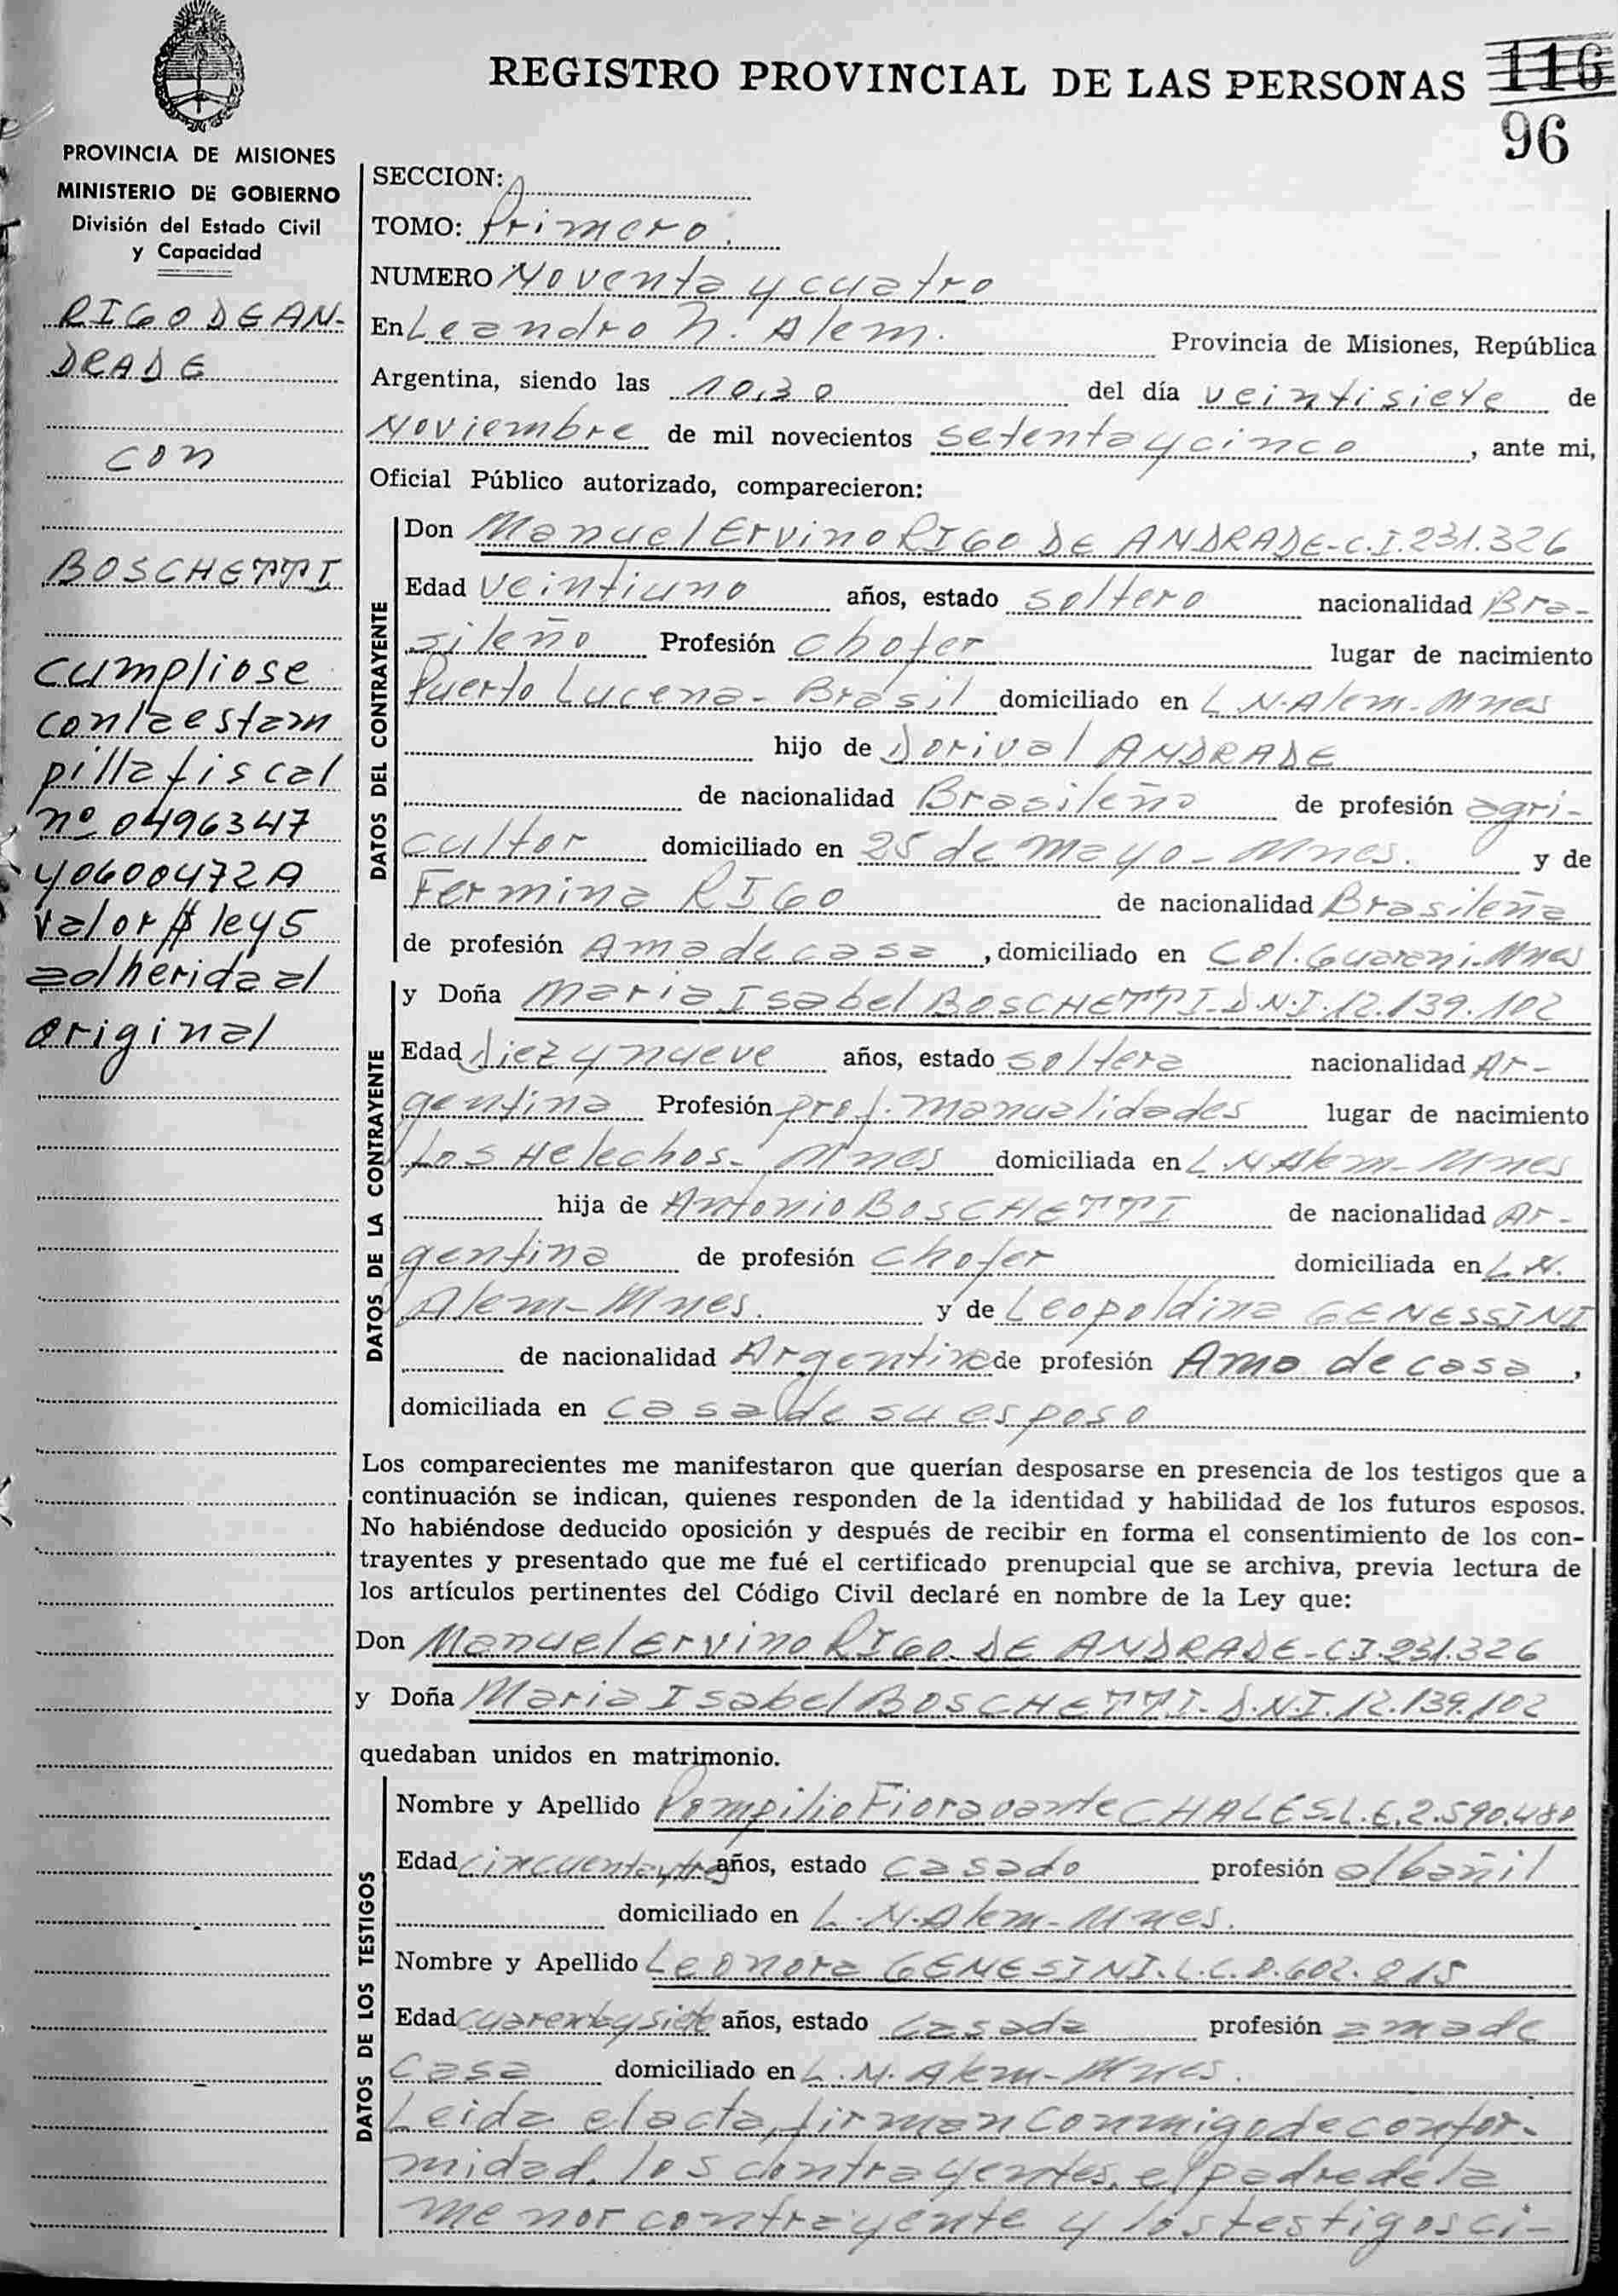 REGISTRO PROVINCIAL DE LAS PERSONAS 116
96
PROVINCIA DE MISIONES
MINISTERIO DE GOBIERNO
División del Estado Civil
y Capacidad
RIGO DE AN-
DRADE
con
BOSCHETTI
cumpliose
con la estam
pilla fiscal
nº 0496347
y 0600472A
valor $ ley 5
adherida al
original
SECCION:
TOMO: Primero.
NUMERO Noventa y cuatro
En Leandro N. Alem. Provincia de Misiones, República
Argentina, siendo las 10,30 del día veintisiete de
Noviembre de mil novecientos setenta y cinco, ante mi,
Oficial Público autorizado, comparecieron:
DATOS DEL CONTRAYENTE
Don Manuel Ervino RIGO DE ANDRADE-C.I.231.326
Edad veintiuno años, estado soltero nacionalidad Bra-
sileño Profesión chofer lugar de nacimiento
Puerto Lucena- Brasil domiciliado en L.N.Alem-Mnes
hijo de Dorival ANDRADE
de nacionalidad Brasileño de profesión agri-
cultor domiciliado en 25 de Mayo-Mnes. y de
Fermina RIGO de nacionalidad Brasileña
de profesión Ama de casa, domiciliado en Col.Guarani-Mnes
DATOS DE LA CONTRAYENTE
y Doña Maria Isabel BOSCHETTI-D.N.I.12.139.102
Edad diez y nueve años, estado soltera nacionalidad Ar-
gentina Profesión prof. manualidades lugar de nacimiento
Los Helechos- Mnes domiciliada en L.N Alem-Mnes
hija de Antonio BOSCHETTI de nacionalidad Ar-
gentina de profesión chofer domiciliada en L.N.
Alem-Mnes. y de Leopoldina GENESSINI
de nacionalidad Argentina de profesión Ama de casa,
domiciliada en casa de su esposo
Los comparecientes me manifestaron que querían desposarse en presencia de los testigos que a
continuación se indican, quienes responden de la identidad y habilidad de los futuros esposos.
No habiéndose deducido oposición y después de recibir en forma el consentimiento de los con-
trayentes y presentado que me fué el certificado prenupcial que se archiva, previa lectura de
los artículos pertinentes del Código Civil declaré en nombre de la Ley que:
Don Manuel Ervino RIGO DE ANDRADE-C.I.231.326
y Doña Maria Isabel BOSCHETTI-D.N.I.12.139.102
quedaban unidos en matrimonio.
DATOS DE LOS TESTIGOS
Nombre y Apellido Pompilio Fioravante CHALES-L.E.2.590.480
Edad cincuenta y tres años, estado casado profesión albañil
domiciliado en L.N.Alem-Mnes.
Nombre y Apellido Leonora GENESINI.L.C.8.602.215
Edad cuarenta y siete años, estado casada profesión ama de
casa domiciliado en L.N.Alem-Mnes.
Leida el acta, firman conmigo de confor-
midad, los contrayentes, el padre de la
menor contrayente y los testigos ci-